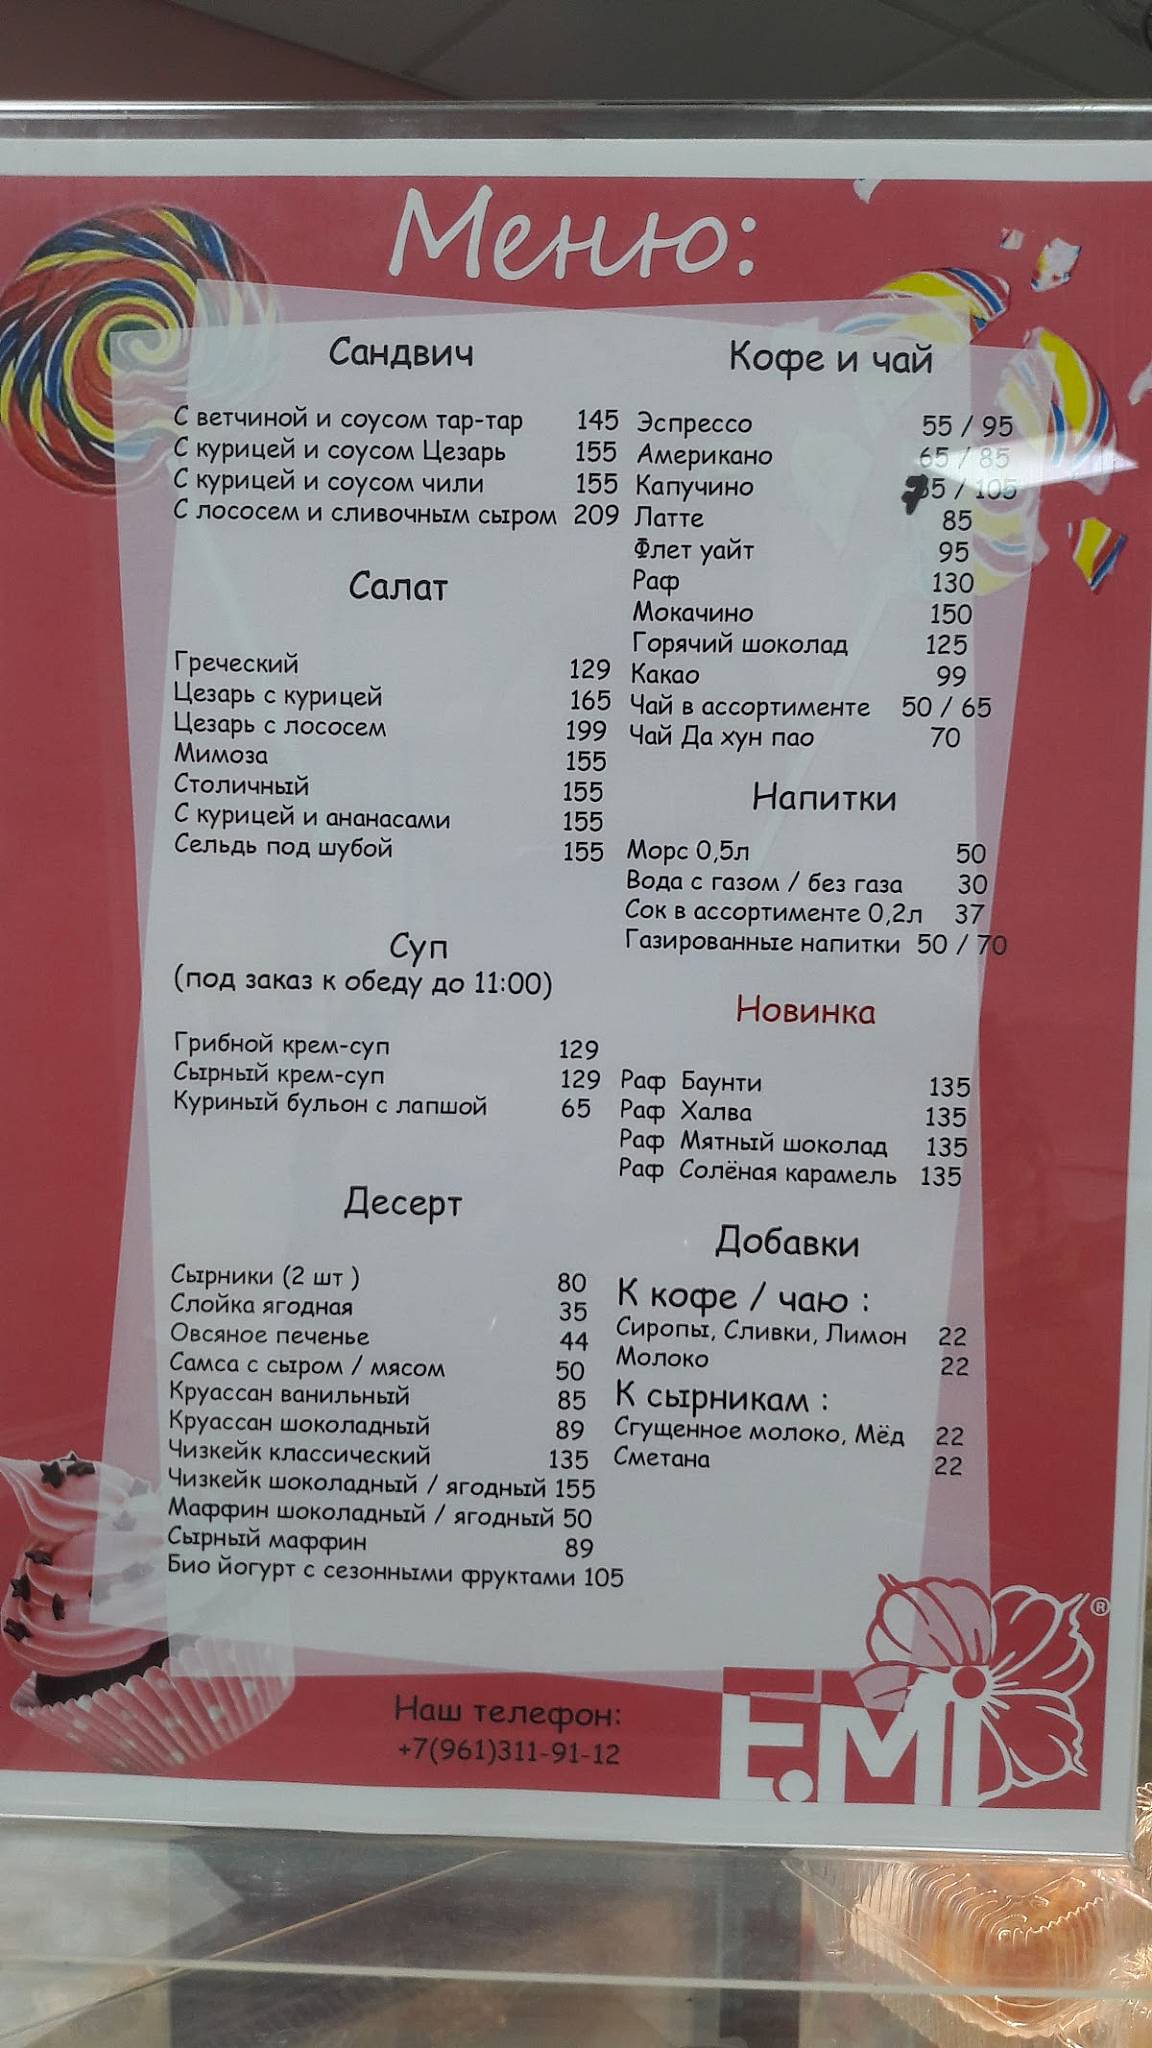 Меню:
Сандвич
С ветчиной и соусом тар-тар 145
С курицей и соусом Цезарь 155
С курицей и соусом чили 155
С лососем и сливочным сыром 209
Салат
Греческий 129
Цезарь с курицей 165
Цезарь с лососем 199
Мимоза 155
Столичный 155
С курицей и ананасами 155
Сельдь под шубой 155
Суп
(под заказ к обеду до 11:00)
Грибной крем-суп 129
Сырный крем-суп 129
Куриный бульон с лапшой 65
Десерт
Сырники (2 шт ) 80
Слойка ягодная 35
Овсяное печенье 44
Самса с сыром / мясом 50
Круассан ванильный 85
Круассан шоколадный 89
Чизкейк классический 135
Чизкейк шоколадный / ягодный 155
Маффин шоколадный / ягодный 50
Сырный маффин 89
Био йогурт с сезонными фруктами 105
Кофе и чай
Эспрессо 55 / 95
Американо 65 / 85
Капучино 75 / 105
Латте 85
Флет уайт 95
Раф 130
Мокачино 150
Горячий шоколад 125
Какао 99
Чай в ассортименте 50 / 65
Чай Да хун пао 70
Напитки
Морс 0,5л 50
Вода с газом / без газа 30
Сок в ассортименте 0,2л 37
Газированные напитки 50 / 70
Новинка
Раф Баунти 135
Раф Халва 135
Раф Мятный шоколад 135
Раф Солёная карамель 135
Добавки
К кофе / чаю :
Сиропы, Сливки, Лимон 22
Молоко 22
К сырникам :
Сгущенное молоко, Мёд 22
Сметана 22
Наш телефон:
+7(961)311-91-12
E.Mi ®